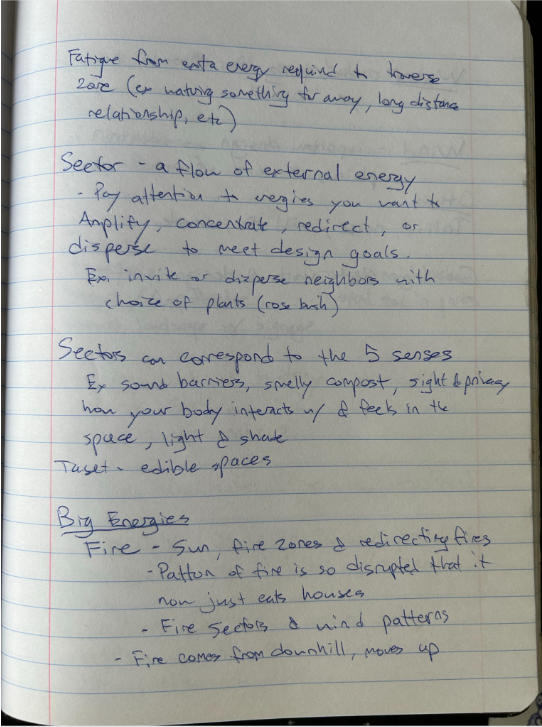 Fatigue from extra energy required to traverse
zone (ex watering something far away, long distance
relationship, etc)
Sector - a flow of external energy
- Pay attention to energies you want to
Amplify, concentrate, redirect, or
disperse to meet design goals.
Ex. invite or dizperse neighbors with
choice of plants (rose bush)
Sectors can correspond to the 5 senses
Ex sound barriers, smelly compost, sight & privacy
how your body interacts w/ & feels in the
space, light & shade
Taset - edible spaces
Big Energies
Fire - Sun, fire zones & redirecting fires
- Pattern of fire is so disrupted that it
now just eats houses
- Fire Sectors & wind patterns
- Fire comes from downhill, moves up